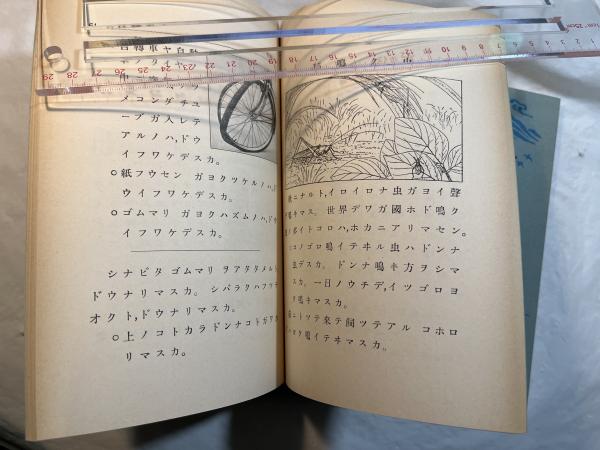 メコンダチユ
ーブガ入レテ
アルノハ,ドウ
イフワケデスカ。
○紙フウセン ガヨクツケルノハ,ド
ウイフワケデスカ。
○ゴムマリ ガヨクハズムノハ,ドウ
イフワケデスカ。
シナビタ ゴムマリ ヲアタタメルト,
ドウナリマスカ。 シバラクハフツテ
オクト,ドウナリマスカ。
○上ノコトカラドンナコトガワカ
リマスカ。
ニナルト,イロイロナ虫ガヨイ聲
鳴キマス。 世界デワガ國ホド鳴ク
ノ多イトコロハ,ホカニアリマセン。
コノゴロ鳴イテヰル虫ハドンナ
虫デスカ。 ドンナ鳴キ方ヲシマ
スカ。一日ノウチデ,イツゴロヨ
ク鳴キマスカ。
ニトツテ来テ飼ツテアル コホロ
ヨク鳴イテヰマスカ。